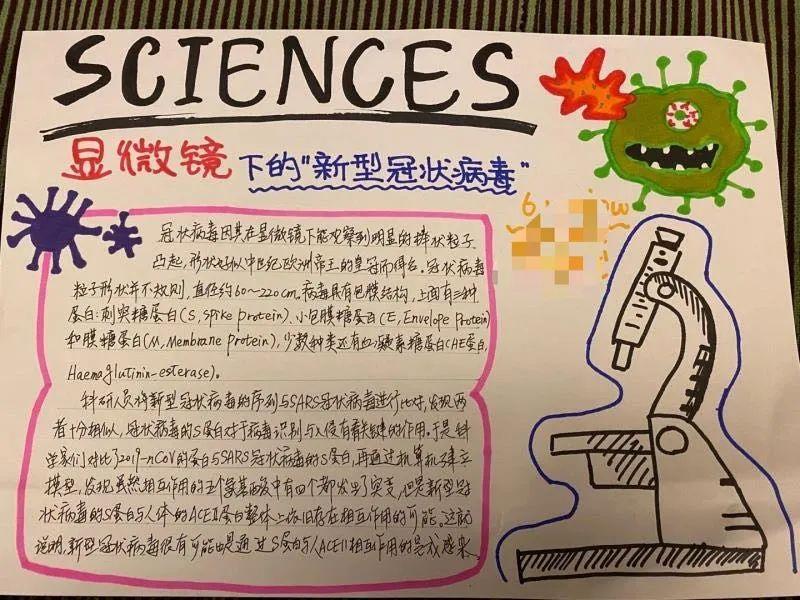 SCIENCES
显微镜下的"新型冠状病毒"
冠状病毒因其在显微镜下能观察到明显的棒状粒子
凸起,形状好似中世纪欧洲帝王的皇冠而得名。冠状病毒
粒子形状并不规则,直径约60~220cm。病毒具有包膜结构,上面有三种
蛋白:刺突糖蛋白(S,Spike protein)、小包膜糖蛋白(E,Envelope Protein)
和膜糖蛋白(M,Membrane protein),少数种类还有血凝素糖蛋白(HE蛋白,
Haemaglutinin-esterase)。
科研人员将新型冠状病毒的序列与SARS冠状病毒进行比对,发现两
者十分相似,冠状病毒的S蛋白对于病毒识别与入侵有着关键的作用。于是科
学家们对比了2019-nCoV的蛋白与SARS冠状病毒的S蛋白,再通过计算机建立
模型,发现虽然相互作用的五个氨基酸中有四个都发生了突变,但是新型冠
状病毒的S蛋白与人体的ACEⅡ蛋白整体上依旧存在相互作用的可能。这就
说明,新型冠状病毒很有可能也是通过S蛋白与人ACEII相互作用的完成感染。